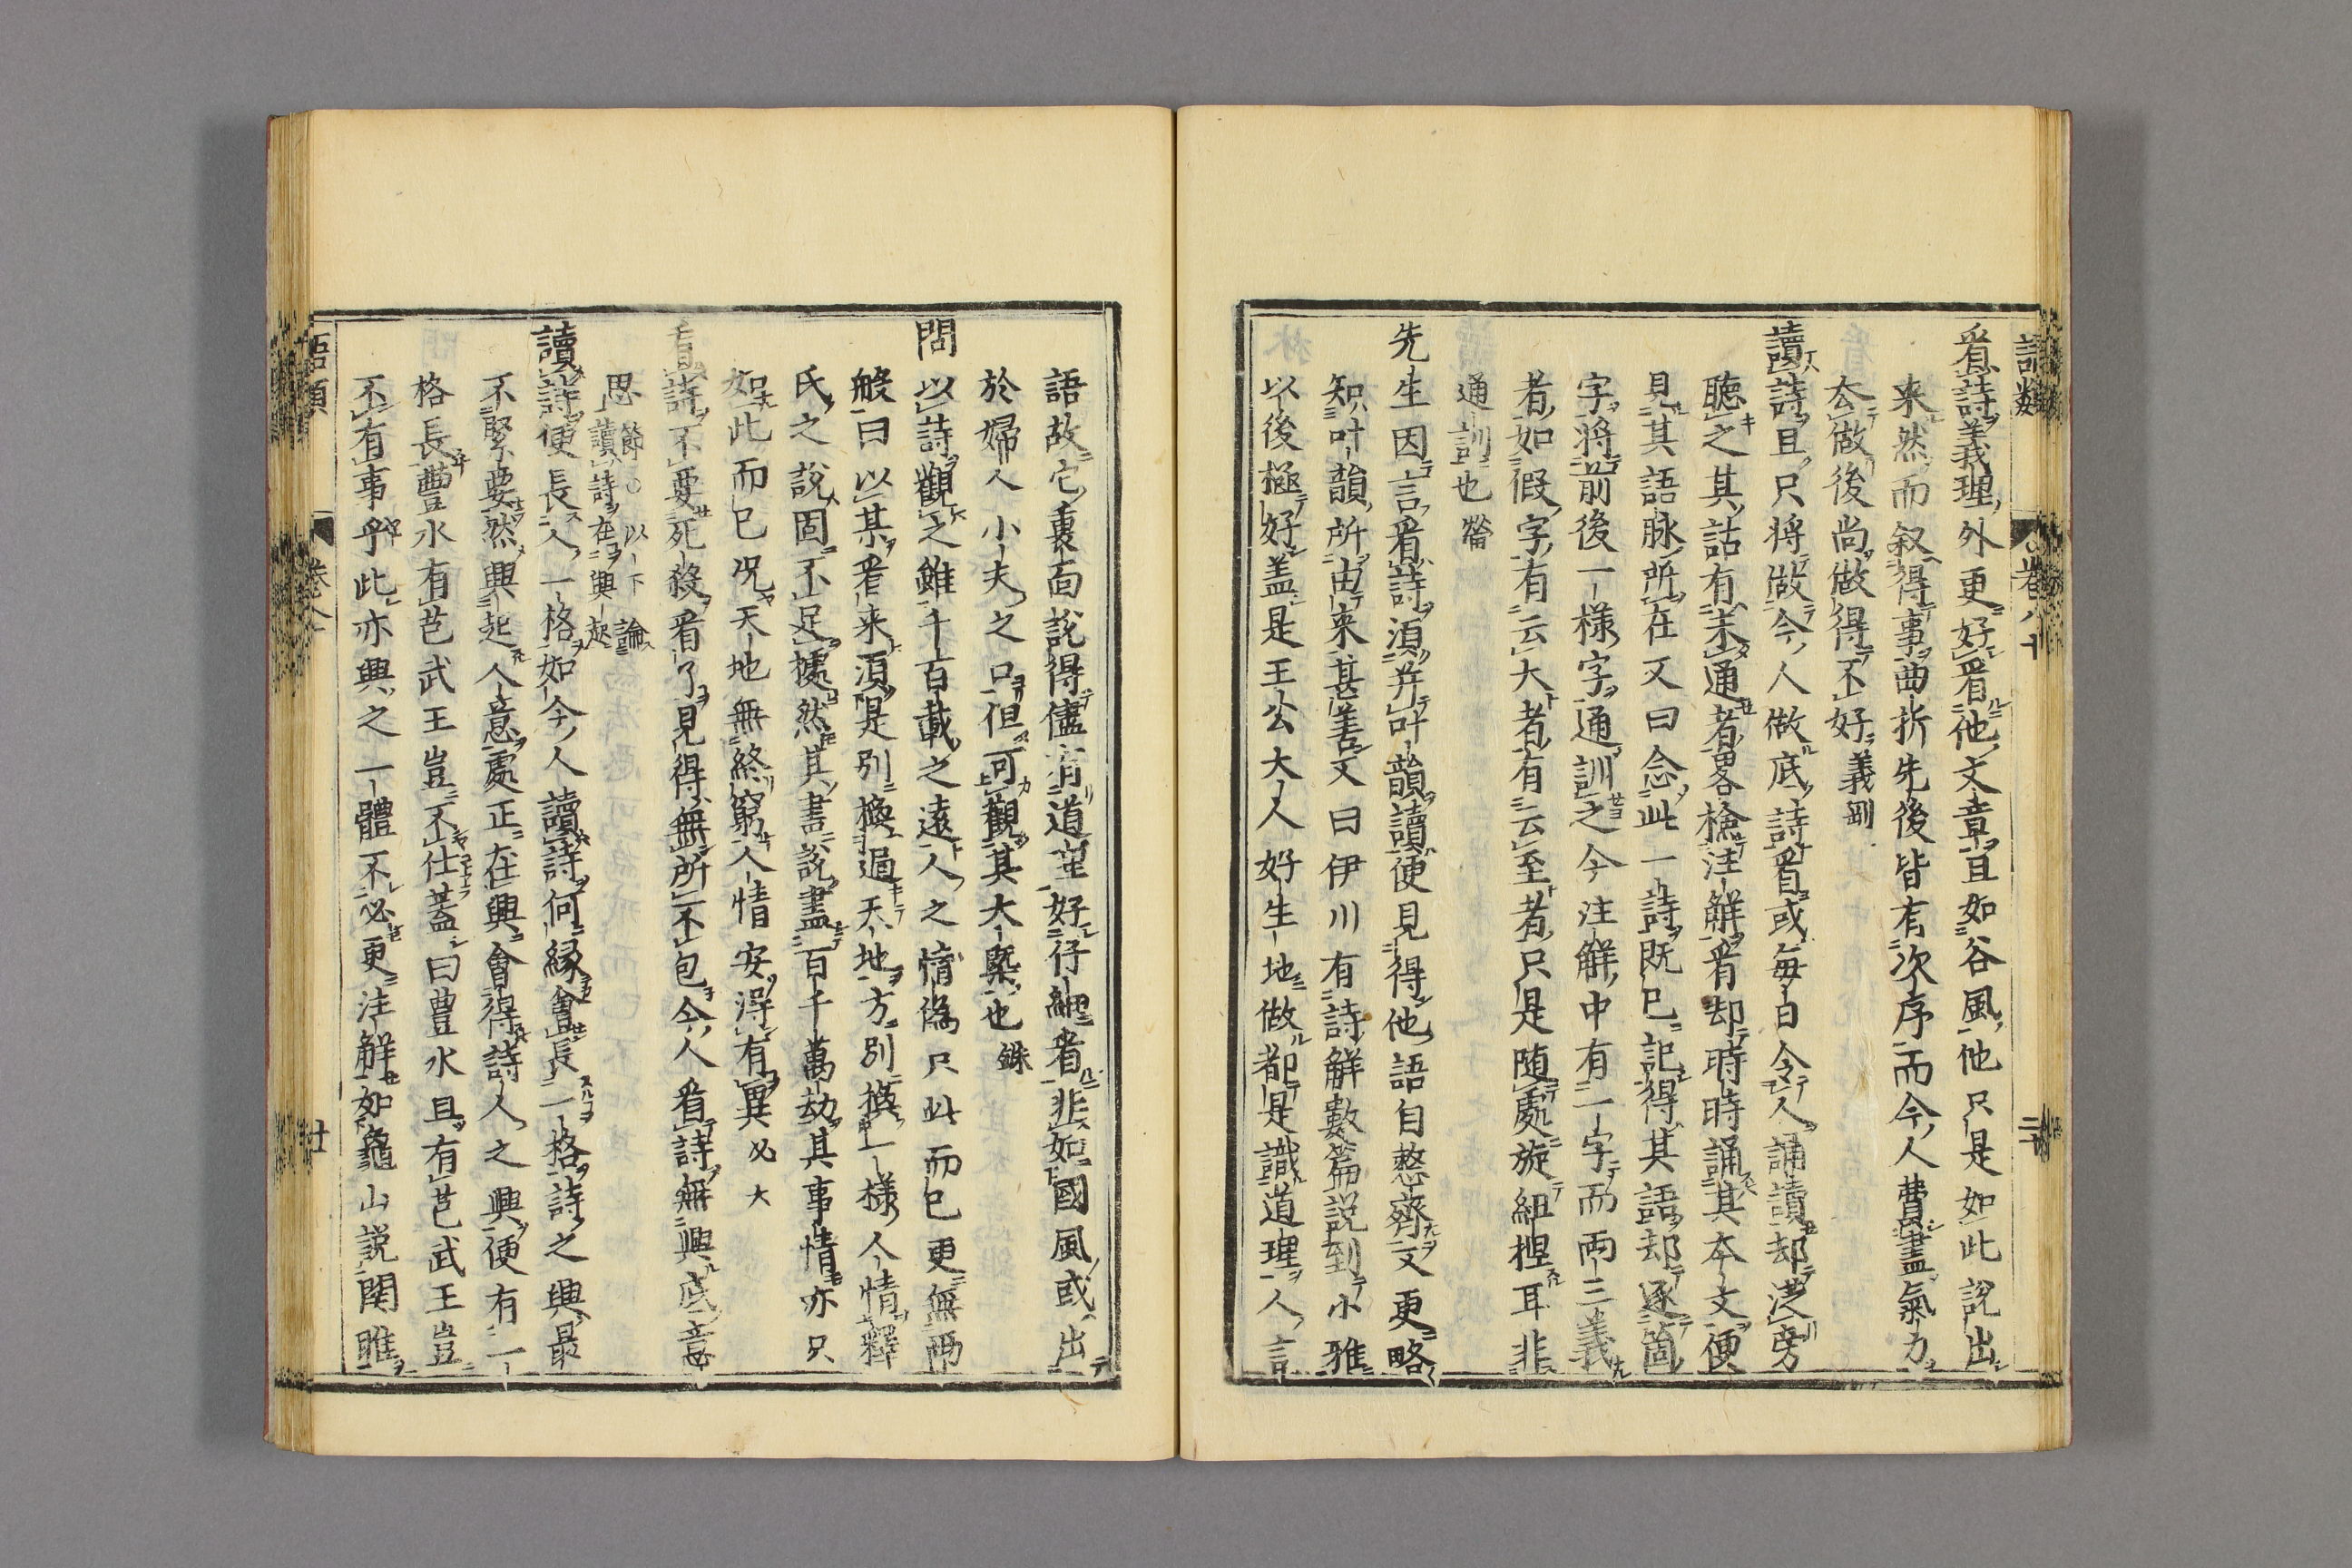 語類 卷八十 二十
看詩義理外更好看他文章且如谷風他只是如此說出
来然而叙得事曲折先後皆有次序而今人費盡氣力
去做後尚做得不好義剛
讀詩且只将做今人做底詩看或毎日令人誦讀却從旁
聽之其話有未通者畧檢注解看却時時誦其本文便
見其語脉所在又曰念此一詩既已記得其語却逐箇
字将前後一様字通訓之今注解中有一字而両三義
者如假字有云大者有云至者只是随處旋紐捏耳非
通訓也㽦
先生因言看詩須并叶韻讀便見得他語自整齊又更略
知叶韻所由来甚善又曰伊川有詩解數篇説到小雅
以後極好盖是王公大人好生地做都是識道理人言
語故它裏面説得儘有道理好仔細看非如國風或出
於婦人小夫之口但可觀其大槩也銖
問以詩觀之雖千百載之遠人之情僞只此而已更無両
般曰以某看来須是別換過天地方別換一様人情釋
氏之說固不足據然其書説盡百千萬劫其事情亦只
如此而已况天地無終窮人情安得有異必大
看詩不要死殺看了見得無所不包今人看詩無興底意
思節〇以下論讀詩在興起
讀詩便長人一格如今人讀詩何縁會長一格詩之興最
不緊要然興起人意處正在興會得詩人之興便有一
格長豐水有芑武王豈不仕蓋曰豐水且有芑武王豈
不有事乎此亦興之一體不必更注解如龜山説関雎
語類 卷八十 廿